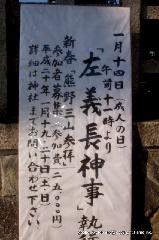 一月十四日(成人の日)
午前十一時より
「左義長神事」執
新春「熊野三山参拝
参加者募集
参加費二五、〇〇〇円
平成二十年一月十九、二十日(土・日)
詳細は神社までお問い合わせ下さい。